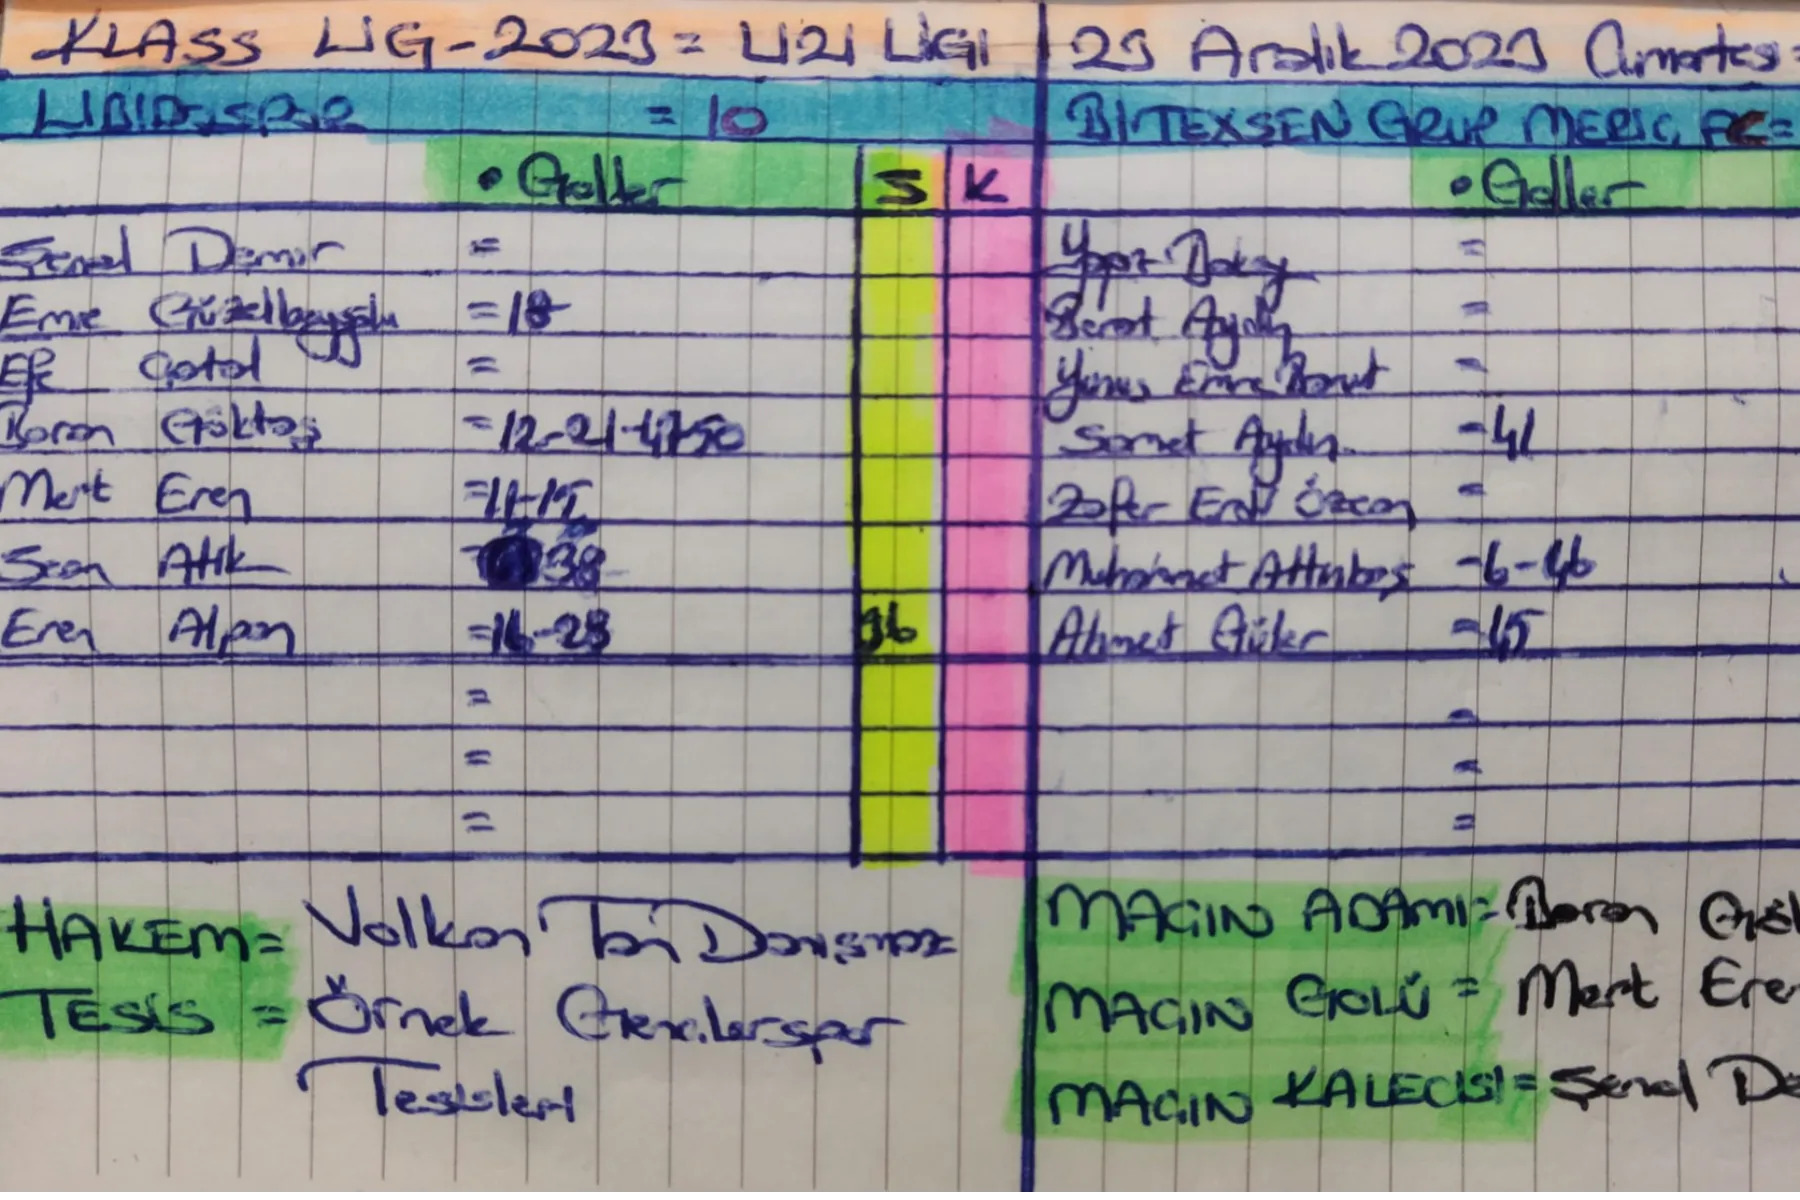 KLASS LİG-2023 = U21 LİGİ
23 Aralık 2023 Cumartesi
LIBIDOSPOR = 10
BİTEXSEN GRUP MERİÇ FC =
• Goller S K
• Goller
Şenol Demir =
Yağız
Emre Güzelbeyoğlu = 18
Berat Aydın =
Efe Çatal =
Yunus Emre Barut -
Boran Göktaş = 12-21-47-50
Samet Aydın -41
Mert Eren =11-15
Zafer Eralp Özcan =
Sean Atik 38
Muhammet Altınbaş -6-46
Eren Alpan =16-28 36
Ahmet Güler -45
=
-
=
-
=
=
HAKEM= Volkan Tan Danışmaz
TESİS = Örnek Gençlerspor
Tesisleri
MAÇIN ADAMI= Boran Gök
MAÇIN GOLÜ = Mert Ere
MAÇIN KALECİSİ= Şenol De